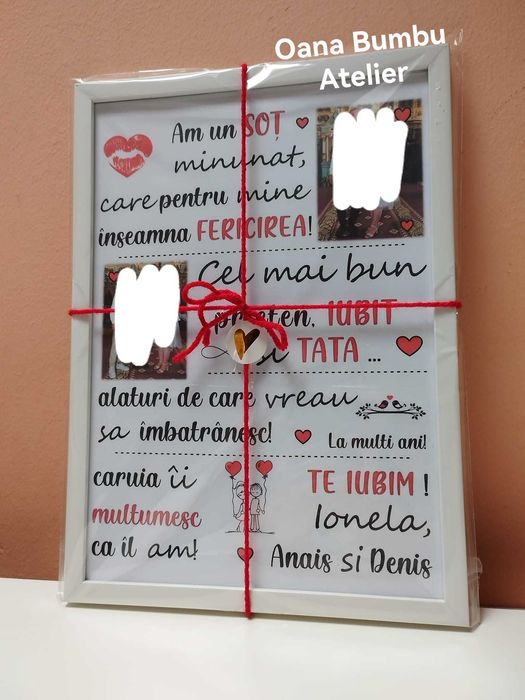 Oana Bumbu
Atelier
Am un SOȚ
minunat,
care pentru mine
înseamna FERICIREA!
Cel mai bun
prieten, IUBIT
si TATA ...
alaturi de care vreau
sa îmbatrânesc!
La multi ani!
caruia îi
multumesc
ca îl am!
TE IUBIM !
Ionela,
Anais si Denis